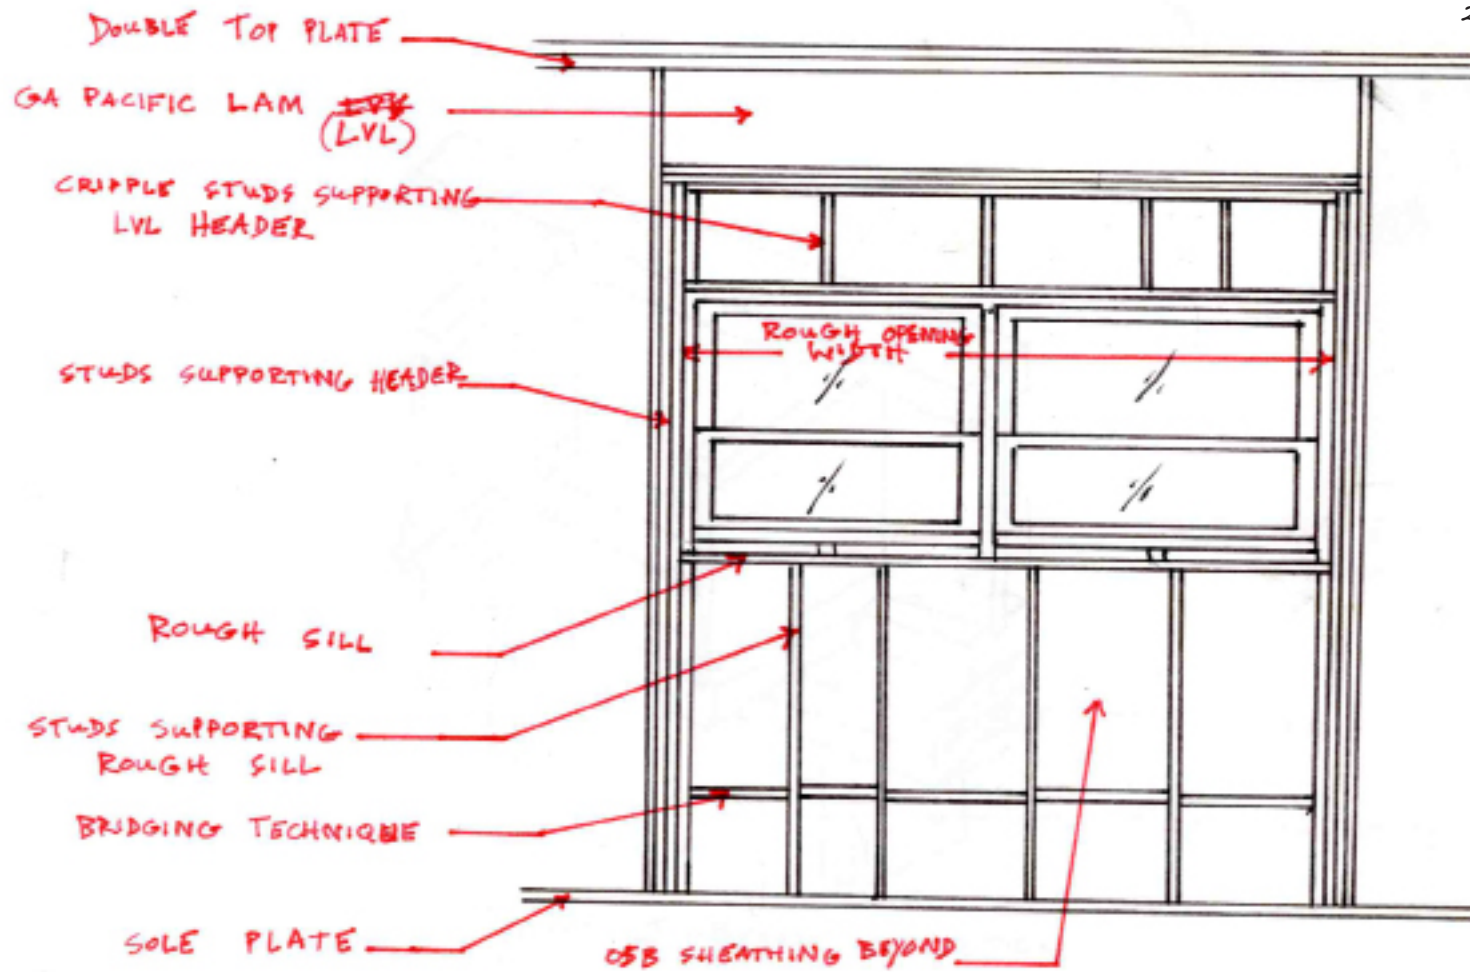 DOUBLE TOP PLATE
GA PACIFIC LAM
(LVL)
CRIPPLE STUDS SUPPORTING
LVL HEADER
ROUGH OPENING
WIDTH
STUDS SUPPORTING HEADER
ROUGH SILL
STUDS SUPPORTING
ROUGH SILL
BRIDGING TECHNIQUE
SOLE PLATE
OSB SHEATHING BEYOND